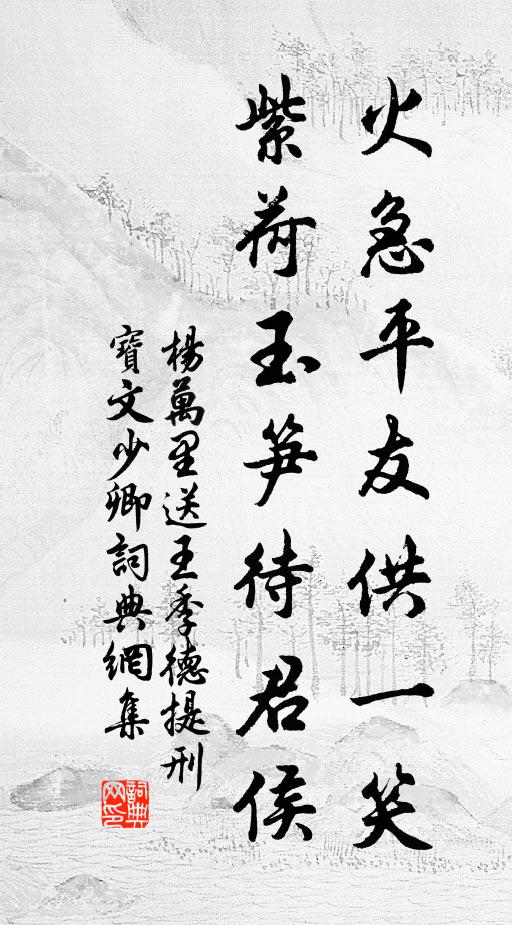 火急平友供一笑
紫荷玉笋待君侯
楊萬里送王季德提刑
寶文少卿詞典網集
詞典網印